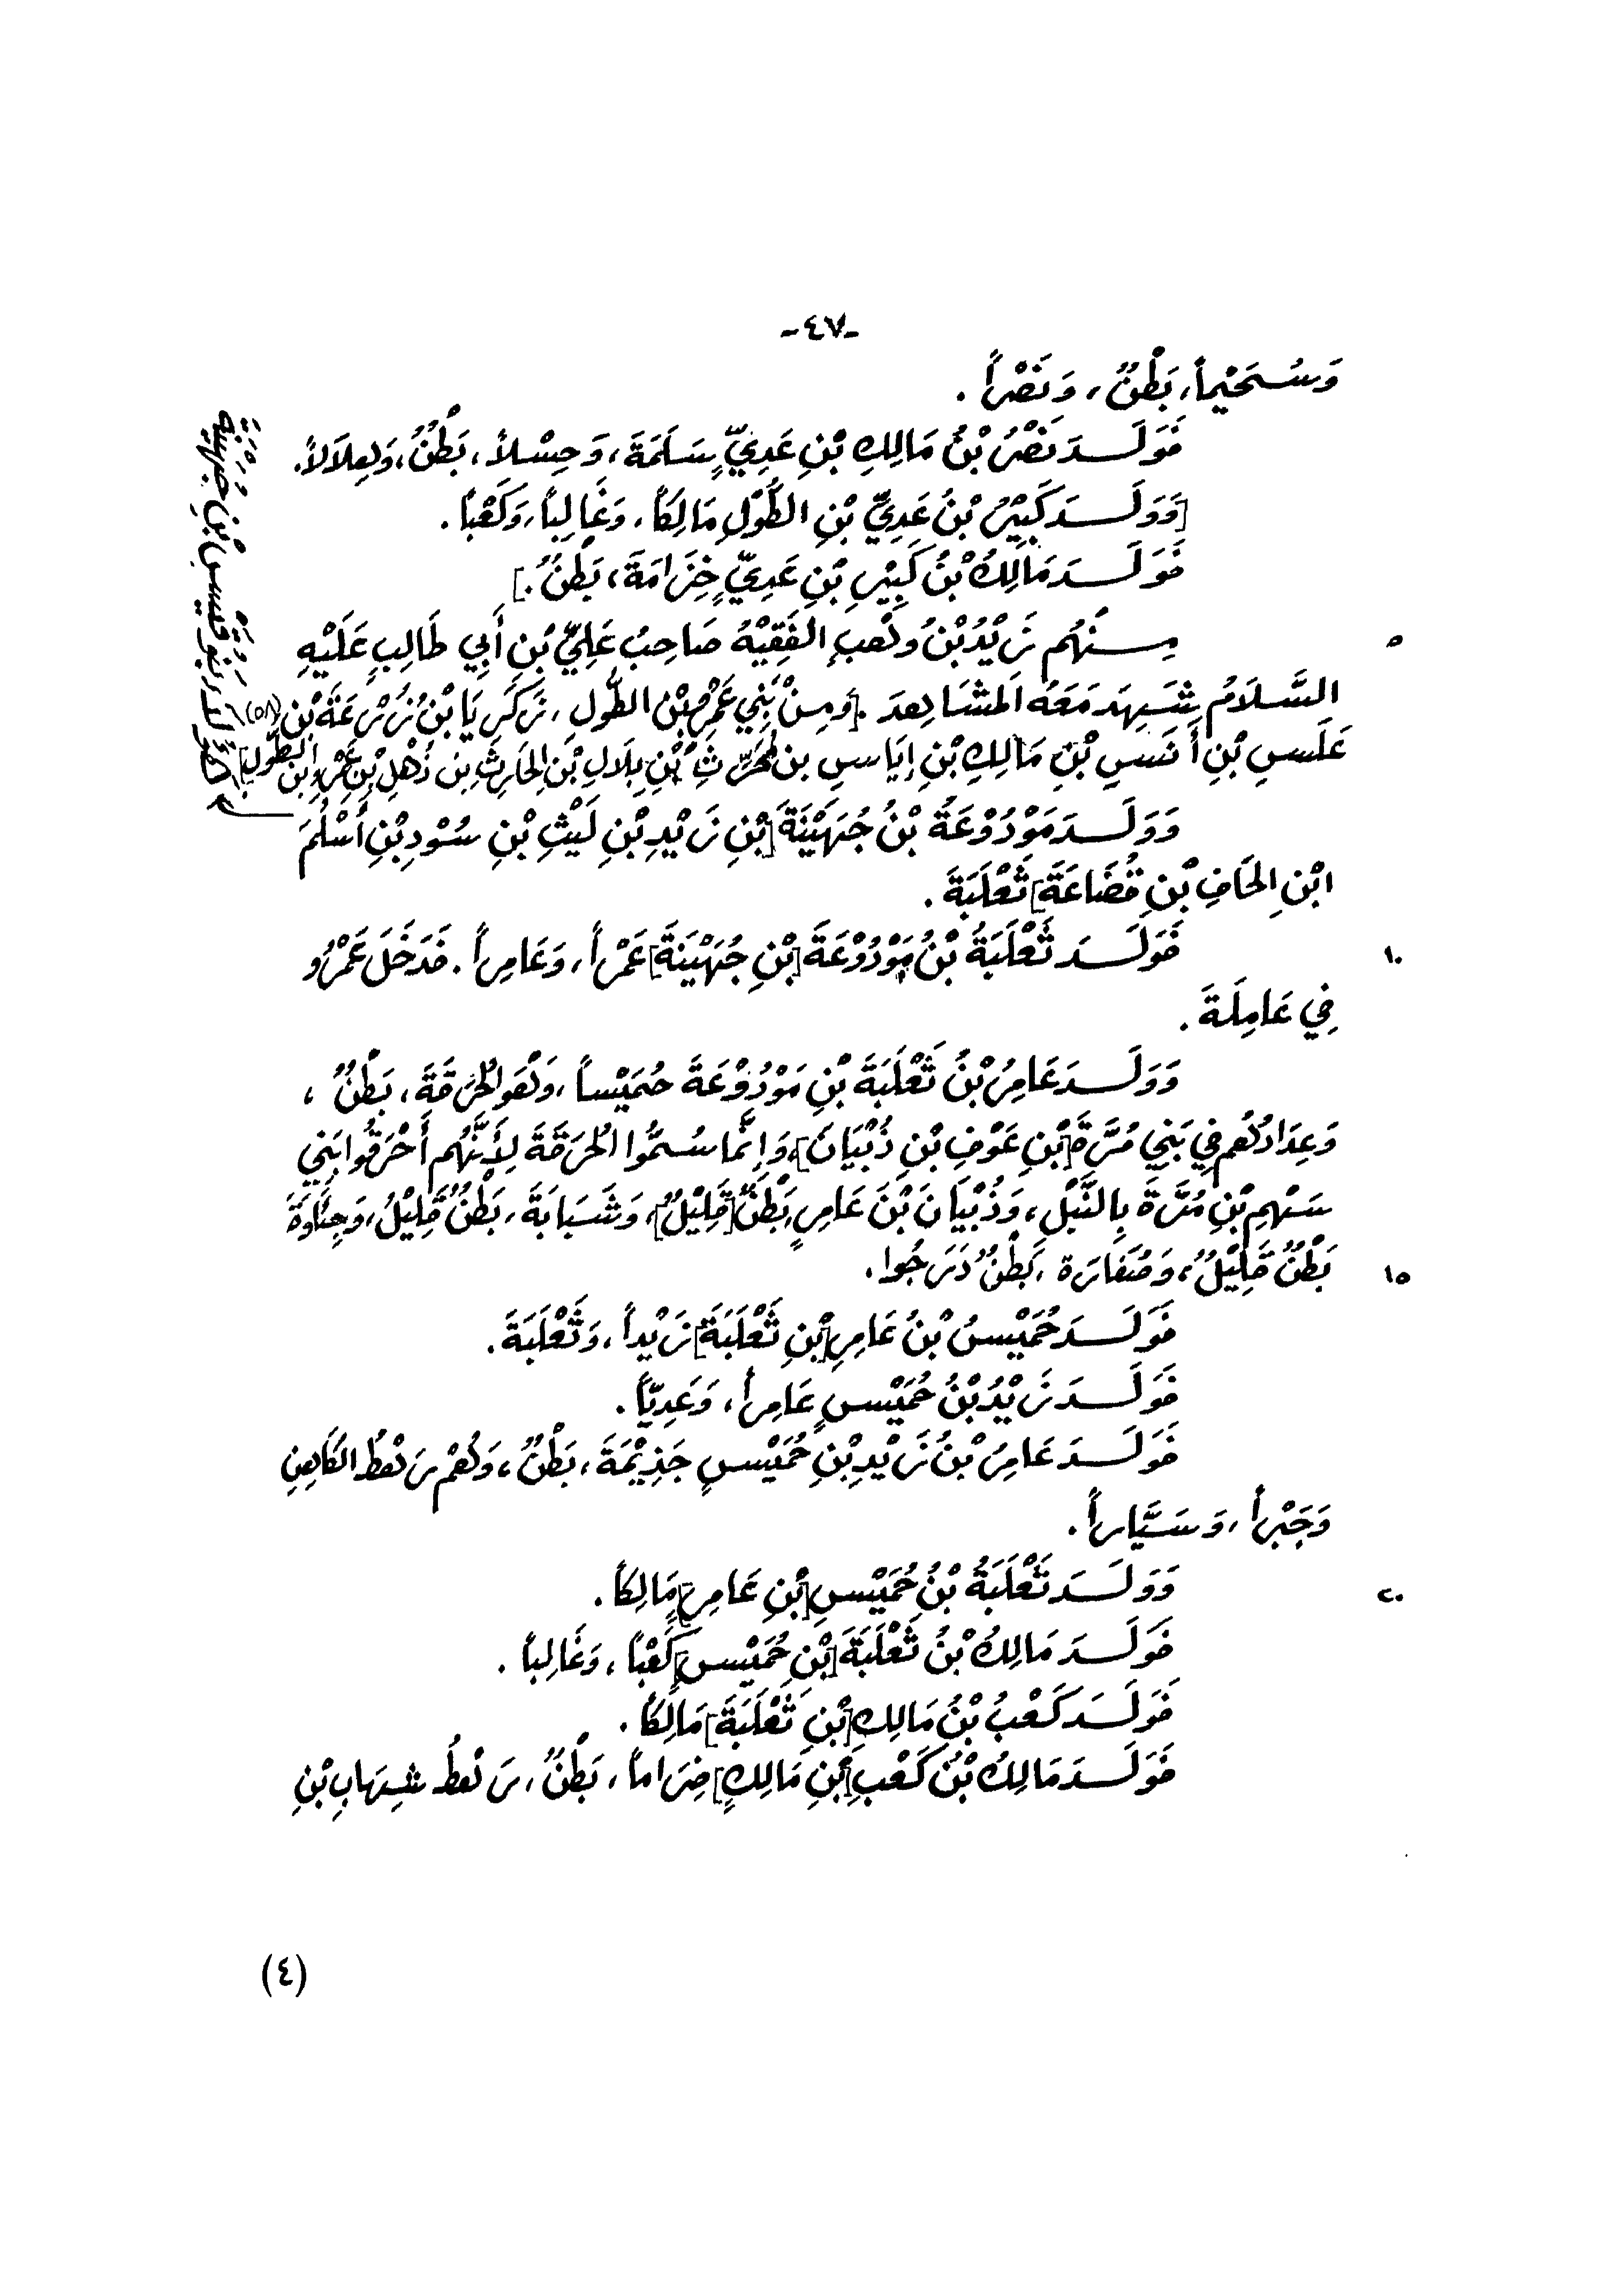 -٤٧-
وَسُحَيْماً، بَطْنٌ، وَنَصْراً.
فَوَلَدَ نَصْرُ بْنُ مَالِكِ بْنِ عَدِيٍّ سَلَمَةَ، وَحِسْلاً، بَطْنٌ، وَهِلَالاً.
[وَوَلَدَ كَبِيْرُ بْنُ عَدِيِّ بْنِ الطُّوْلِ مَالِكاً، وَغَالِباً، وَكَعْباً.
فَوَلَدَ مَالِكُ بْنُ كَبِيْرِ بْنِ عَدِيٍّ خِزَامَةَ، بَطْنٌ.]
٥ مِنْهُم زَيْدُ بْنُ وَهْبٍ الفَقِيْهُ صَاحِبُ عَلِيِّ بْنِ أَبِي طَالِبٍ عَلَيْهِ
السَّلَامُ شَهِدَ مَعَهُ المَشَاهِدَ. [وَمِنْ بَنِي عَمْرِو بْنِ الطُّولِ، زَكَرِيَا بْنُ زُرْعَةَ بْنِ (٥٨)
عَلَسِ بْنِ أَنَسِ بْنِ مَالِكِ بْنِ إِيَاسِ بن مُحَرِّثِ بْنِ بِلَالِ بْنِ الحَارِثِ بن ذُهْلِ بْنِ عَمْرِو ابن الطُّولِ]
هَؤُلَاءِ بَنُو قَيْسِ بْنِ جُهَيْنَةَ
وَوَلَدَ مَوْدُوْعَةُ بْنُ جُهَيْنَةَ [بْنِ زَيْدِ بْنِ لَيْثِ بْنِ سُوْدِ بْنِ أَسْلُمَ
ابْنِ الحَافِ بْنِ قُضَاعَةَ] ثَعْلَبَةَ.
١٠ فَوَلَدَ ثَعْلَبَةُ بْنُ مَوْدُوْعَةَ [بْنِ جُهَيْنَةَ] عَمْراً، وَعَامِراً. فَدَخَلَ عَمْرُو
فِي عَامِلَةَ.
وَوَلَدَ عَامِرُ بْنُ ثَعْلَبَةَ بْنِ مَوْدُوْعَةَ حُمَيْساً، وَهُوَ الحُرَقَةَ، بَطْنٌ،
وَعِدَادُهُم فِي بَنِي مُرَّةَ [بْنِ عَوْفِ بْنِ ذُبْيَانَ]، وَإِنَّمَا سُمُّوا الحُرَقَةَ لِأَنَّهُم أَحْرَقُوا بَنِي
سَهْمِ بْنِ مُرَّةَ بِالنَّبْلِ، وَذُبْيَانَ بْنَ عَامِرٍ، بَطْنٌ [قَلِيْلٌ]، وَشَبَابَةَ، بَطْنٌ قَلِيْلٌ، وَحِنَاوَةَ
١٥ بَطْنٌ قَلِيْلٌ، وَصَنَفَارَة، بَطْنٌ دَرَجُوا.
فَوَلَدَ حُمَيْسُ بْنُ عَامِرِ [بْنِ ثَعْلَبَةَ] زَيْداً، وَثَعْلَبَةَ.
فَوَلَدَ زَيْدُ بْنُ حُمَيْسٍ عَامِراً، وَعَدِيّاً.
فَوَلَدَ عَامِرُ بْنُ زَيْدِ بْنِ حُمَيْسٍ جَذِيْمَةَ، بَطْنٌ، وَهُمْ رَهْطُ الكَاهِنِ
وَجَبْراً، وَسَيَّاراً.
٢٠ وَوَلَدَ ثَعْلَبَةُ بْنُ حُمَيْسِ [بْنِ عَامِرٍ] مَالِكاً.
فَوَلَدَ مَالِكُ بْنُ ثَعْلَبَةَ [بْنِ حُمَيْسٍ] كَعْباً، وَغَالِباً.
فَوَلَدَ كَعْبُ بْنُ مَالِكِ [بْنِ ثَعْلَبَةَ] مَالِكاً.
فَوَلَدَ مَالِكُ بْنُ كَعْبِ [بْنِ مَالِكٍ] ضِرَاماً، بَطْنٌ، رَهْطُ شِهَابِ بْنِ
(٤)